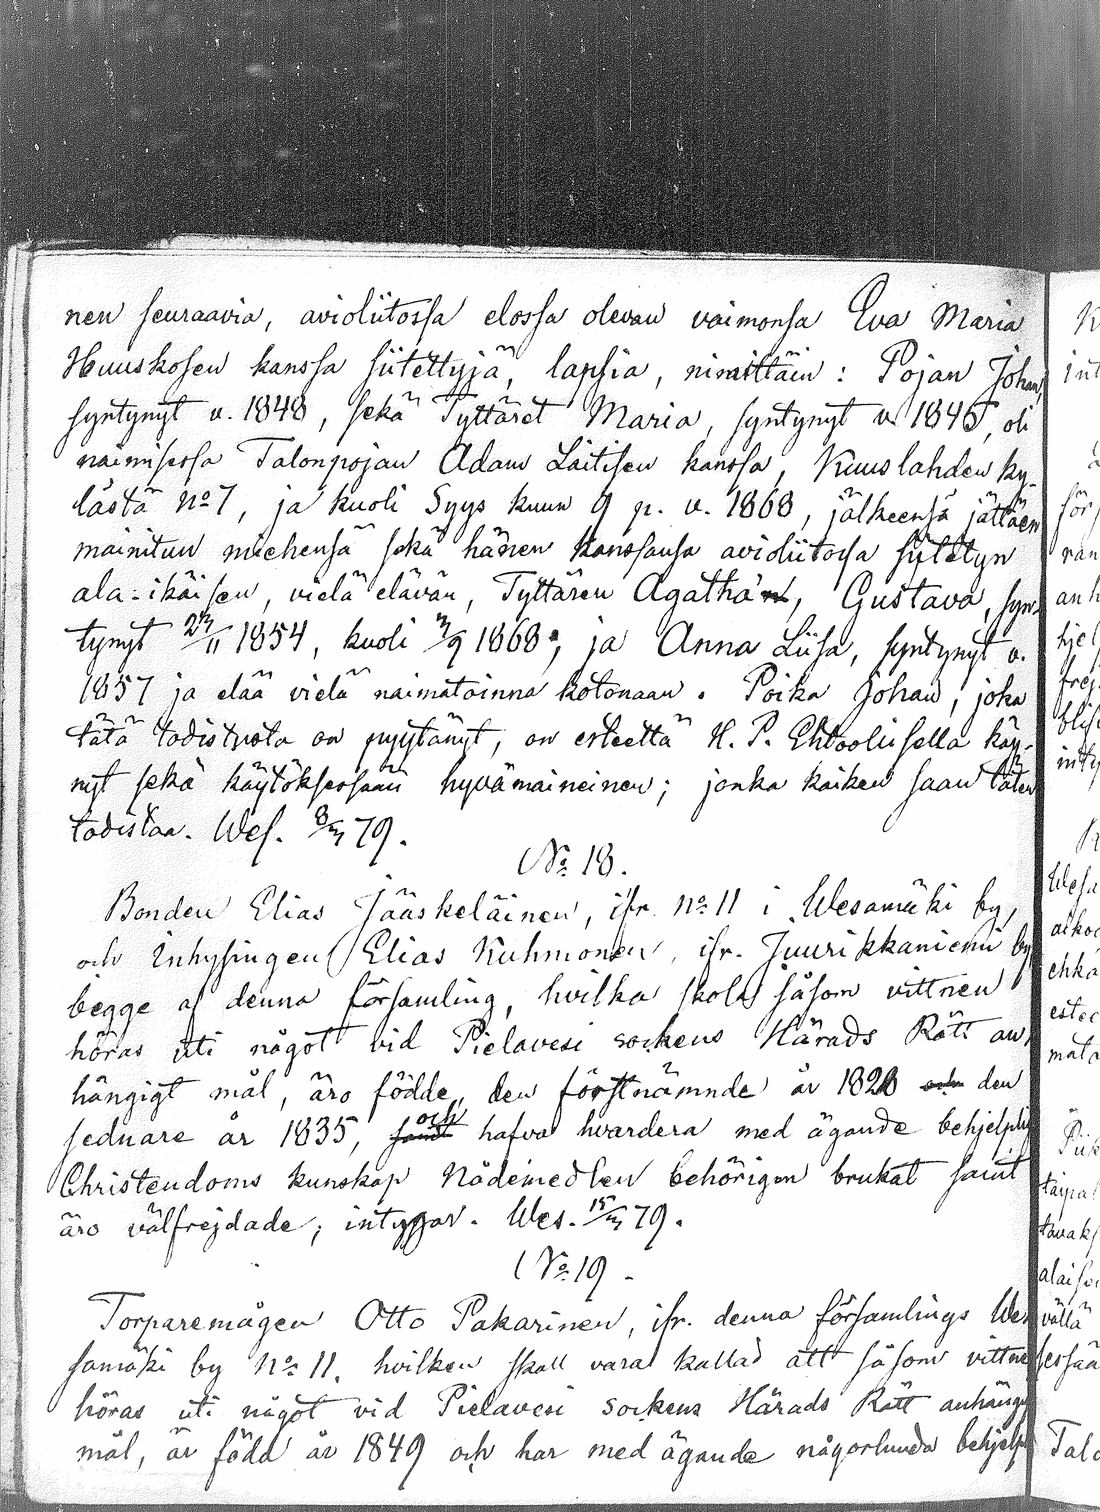 nen seuraavia, avioliitossa elossa olevan vaimonsa Eva Maria
Huuskosen kanssa siitettyjä, lapsia, nimittäin: Pojan Johan,
syntynyt v. 1848, sekä Tyttäret Maria, syntynyt v. 1845, oli
naimisessa Talonpojan Adam Laitisen kanssa, Kuuslahden ky-
lästä No 7, ja kuoli Syys kuun 9 p. v. 1868, jälkeensä jättäen
mainitun miehensä sekä hänen kanssansa avioliitossa siitetyn
ala-ikäisen, vielä elävän, Tyttären Agatha, Gustava, syn-
tynyt 23/11 1854, kuoli 3/9 1868; ja Anna Liisa, syntynyt v.
1857 ja elää vielä naimatoinna kotonaan. Poika Johan, joka
tätä todistusta on pyytänyt, on esteettä H. P. Ehtoolisella käy-
nyt sekä käytöksessään hyvämaineinen; jonka kaiken saan täten
todistaa. Wes. 8/3 79.
No 18.
Bonden Elias Jääskeläinen, ifr. No 11 i Wesamäki by,
och Inhysingen Elias Kuhmonen, ifr. Juurikkaniemi by
begge af denna församling, hvilka skola såsom vittnen
höras uti något vid Pielavesi sockens Härads Rätt an-
hängigt mål, äro födde, den förstnämnde år 1828 den
sednare år 1835, och hafva hvardera med ägande behjelplig
Christendoms kunskap Nådemedlen behörigen brukat samt
äro välfrejdade; intygar. Wes. 15/3 79.
No 19.
Torparemågen Otto Pakarinen, ifr. denna församlings We-
samäki by No 11, hvilken skall vara kallad att såsom vittne
höras uti något vid Pielavesi sockens Härads Rätt anhängigt
mål, är född år 1849 och har med ägande någorlunda behjelp